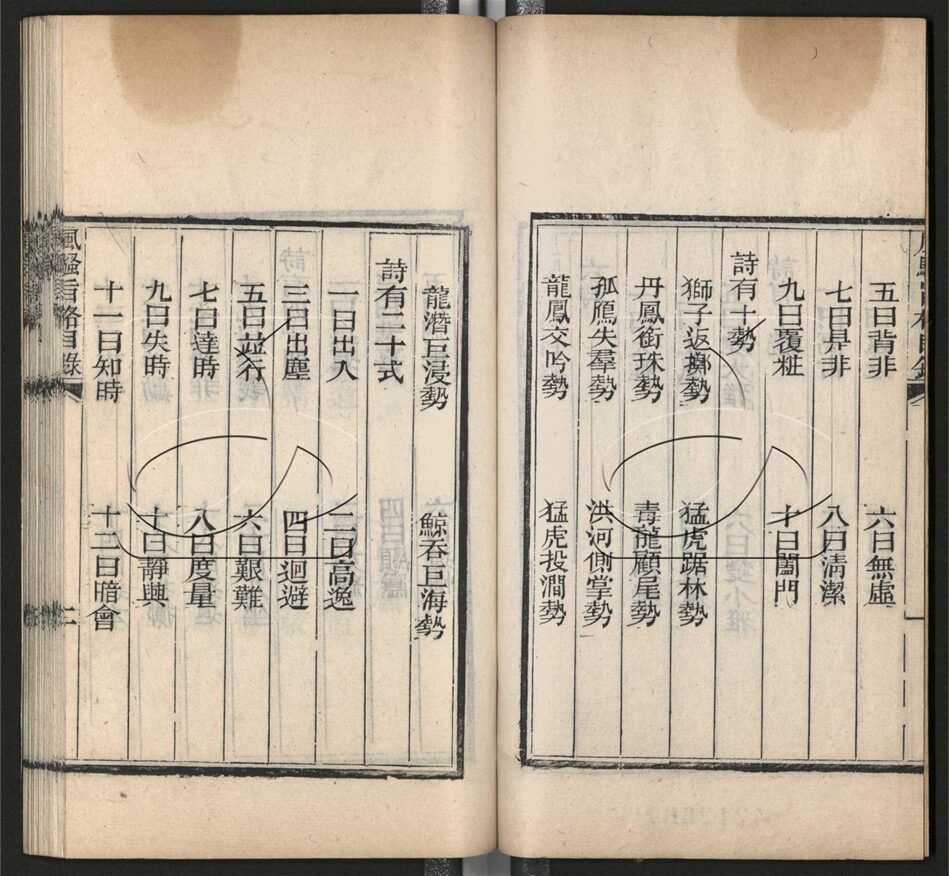 五曰背非　六曰無虛
七曰是非　八曰清潔
九曰覆粧　十曰闔門
詩有十勢
獅子返擲勢　猛虎踞林勢
丹鳳銜珠勢　青龍顧尾勢
孤鴈失羣勢　洪河側掌勢
龍鳳交吟勢　猛虎投澗勢
龍潛巨浸勢　鯨吞巨海勢
詩有二十式
一曰出入　二曰高逸
三曰出塵　四曰迴避
五曰並行　六曰艱難
七曰達時　八曰度量
九曰失時　十曰靜興
十一曰知時　十二曰暗會
風騷旨格目錄　二